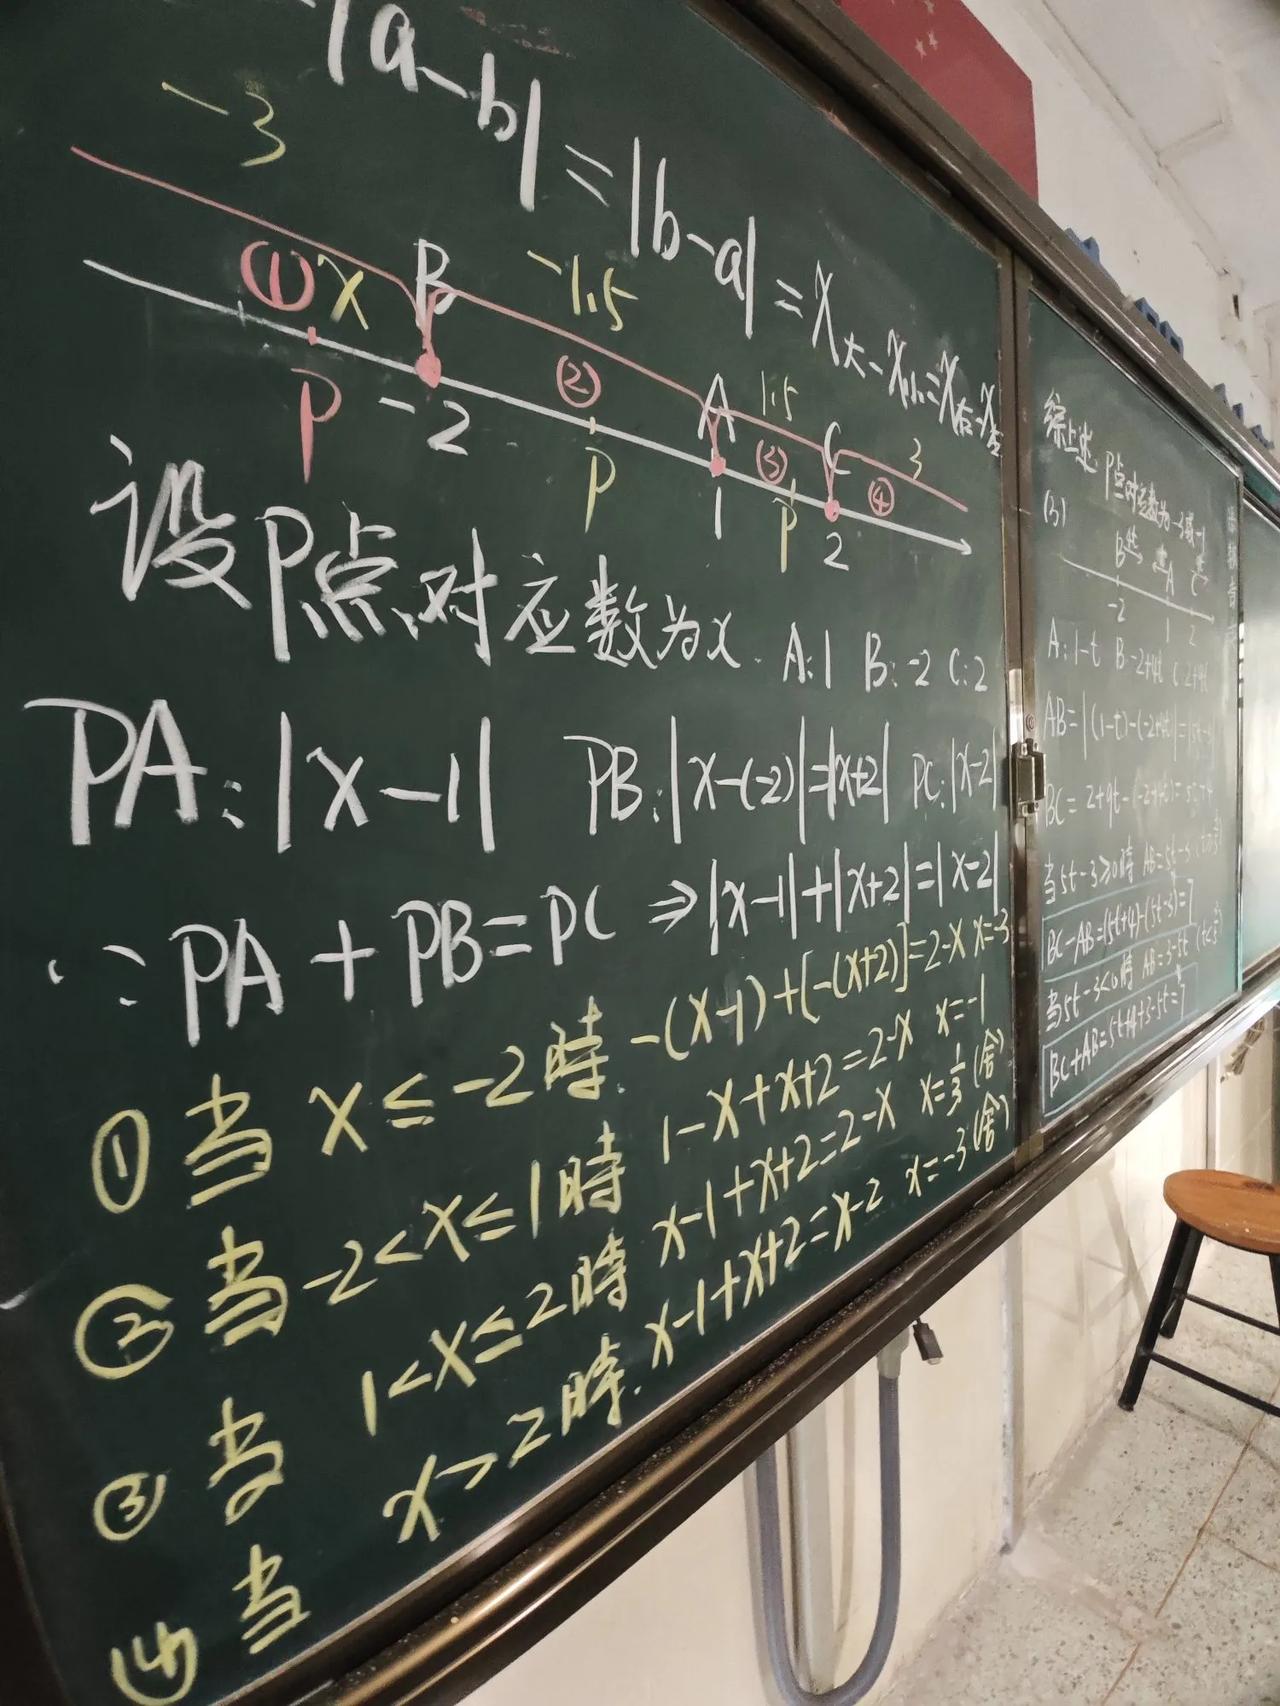 |a-b|=|b-a|=x大-x小=x右-x左
-3 -1.5 1.5 3
① x B ② A ③ C ④
P -2 P 1 P 2
设P点对应数为x. A:1 B:-2 C:2
PA:|x-1| PB:|x-(-2)|=|x+2| PC:|x-2|
∵PA+PB=PC ⇒|x-1|+|x+2|=|x-2|
①当 x≤-2時. -(x-1)+[-(x+2)]=2-x x=-3
②当 -2<x≤1時 1-x+x+2=2-x x=-1
③当 1<x≤2時 x-1+x+2=2-x x=1/3(舍)
④当 x>2時. x-1+x+2=x-2 x=-3(舍)
综上述, P点对应数为-3或-1
(3)
B A C
-2 1 2
A:1-t B:-2+4t C:2+9t
AB=|(1-t)-(-2+4t)|=|5t-3|
BC=2+9t-(-2+4t)=5t+4
当5t-3≥0時 AB=5t-3
BC-AB=(5t+4)-(5t-3)=7
当5t-3<0時 AB=3-5t
BC+AB=5t+4+3-5t=7